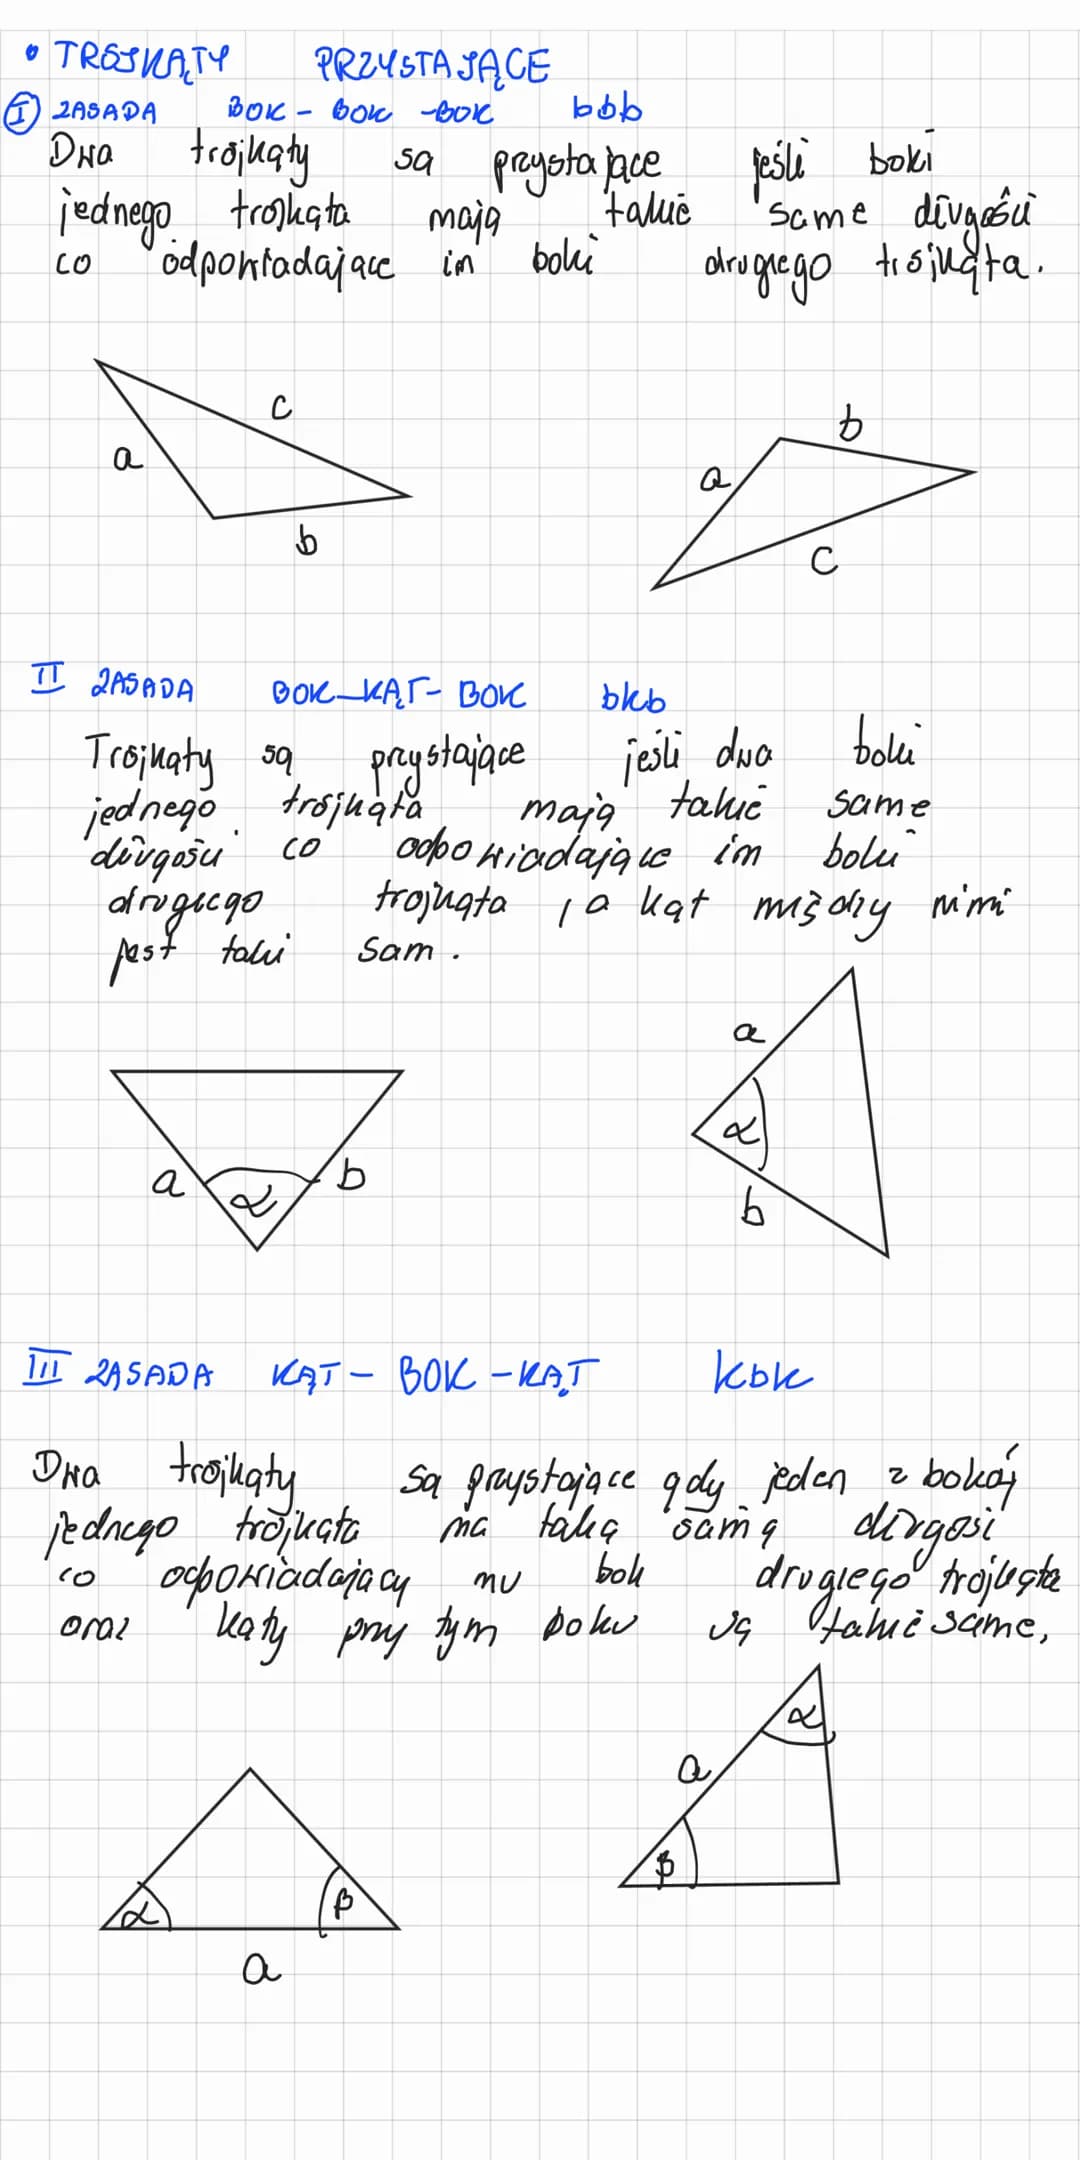 • TRÓJKĄTY PRZYSTAJĄCE
I ZASADA BOK - BOK - BOK bbb
Dwa trójkąty są przystające jeśli boki
jednego trójkąta mają takie same długości
co odpowiadające im boki drugiego trójkąta.
c
a
b
b
a
c
II ZASADA BOK-KĄT-BOK bkb
Trójkąty są przystające jeśli dwa boki
jednego trójkąta mają takie same
długości co odpowiadające im boki
drugiego trójkąta, a kąt między nimi
jest taki sam.
a
α
b
a α b
III ZASADA KĄT - BOK - KĄT kbk
Dwa trójkąty są przystające gdy jeden z boków
jednego trójkąta ma taką samą długość
co odpowiadający mu bok drugiego trójkąta
oraz kąty przy tym boku są takie same.
α
a
β
α β
a